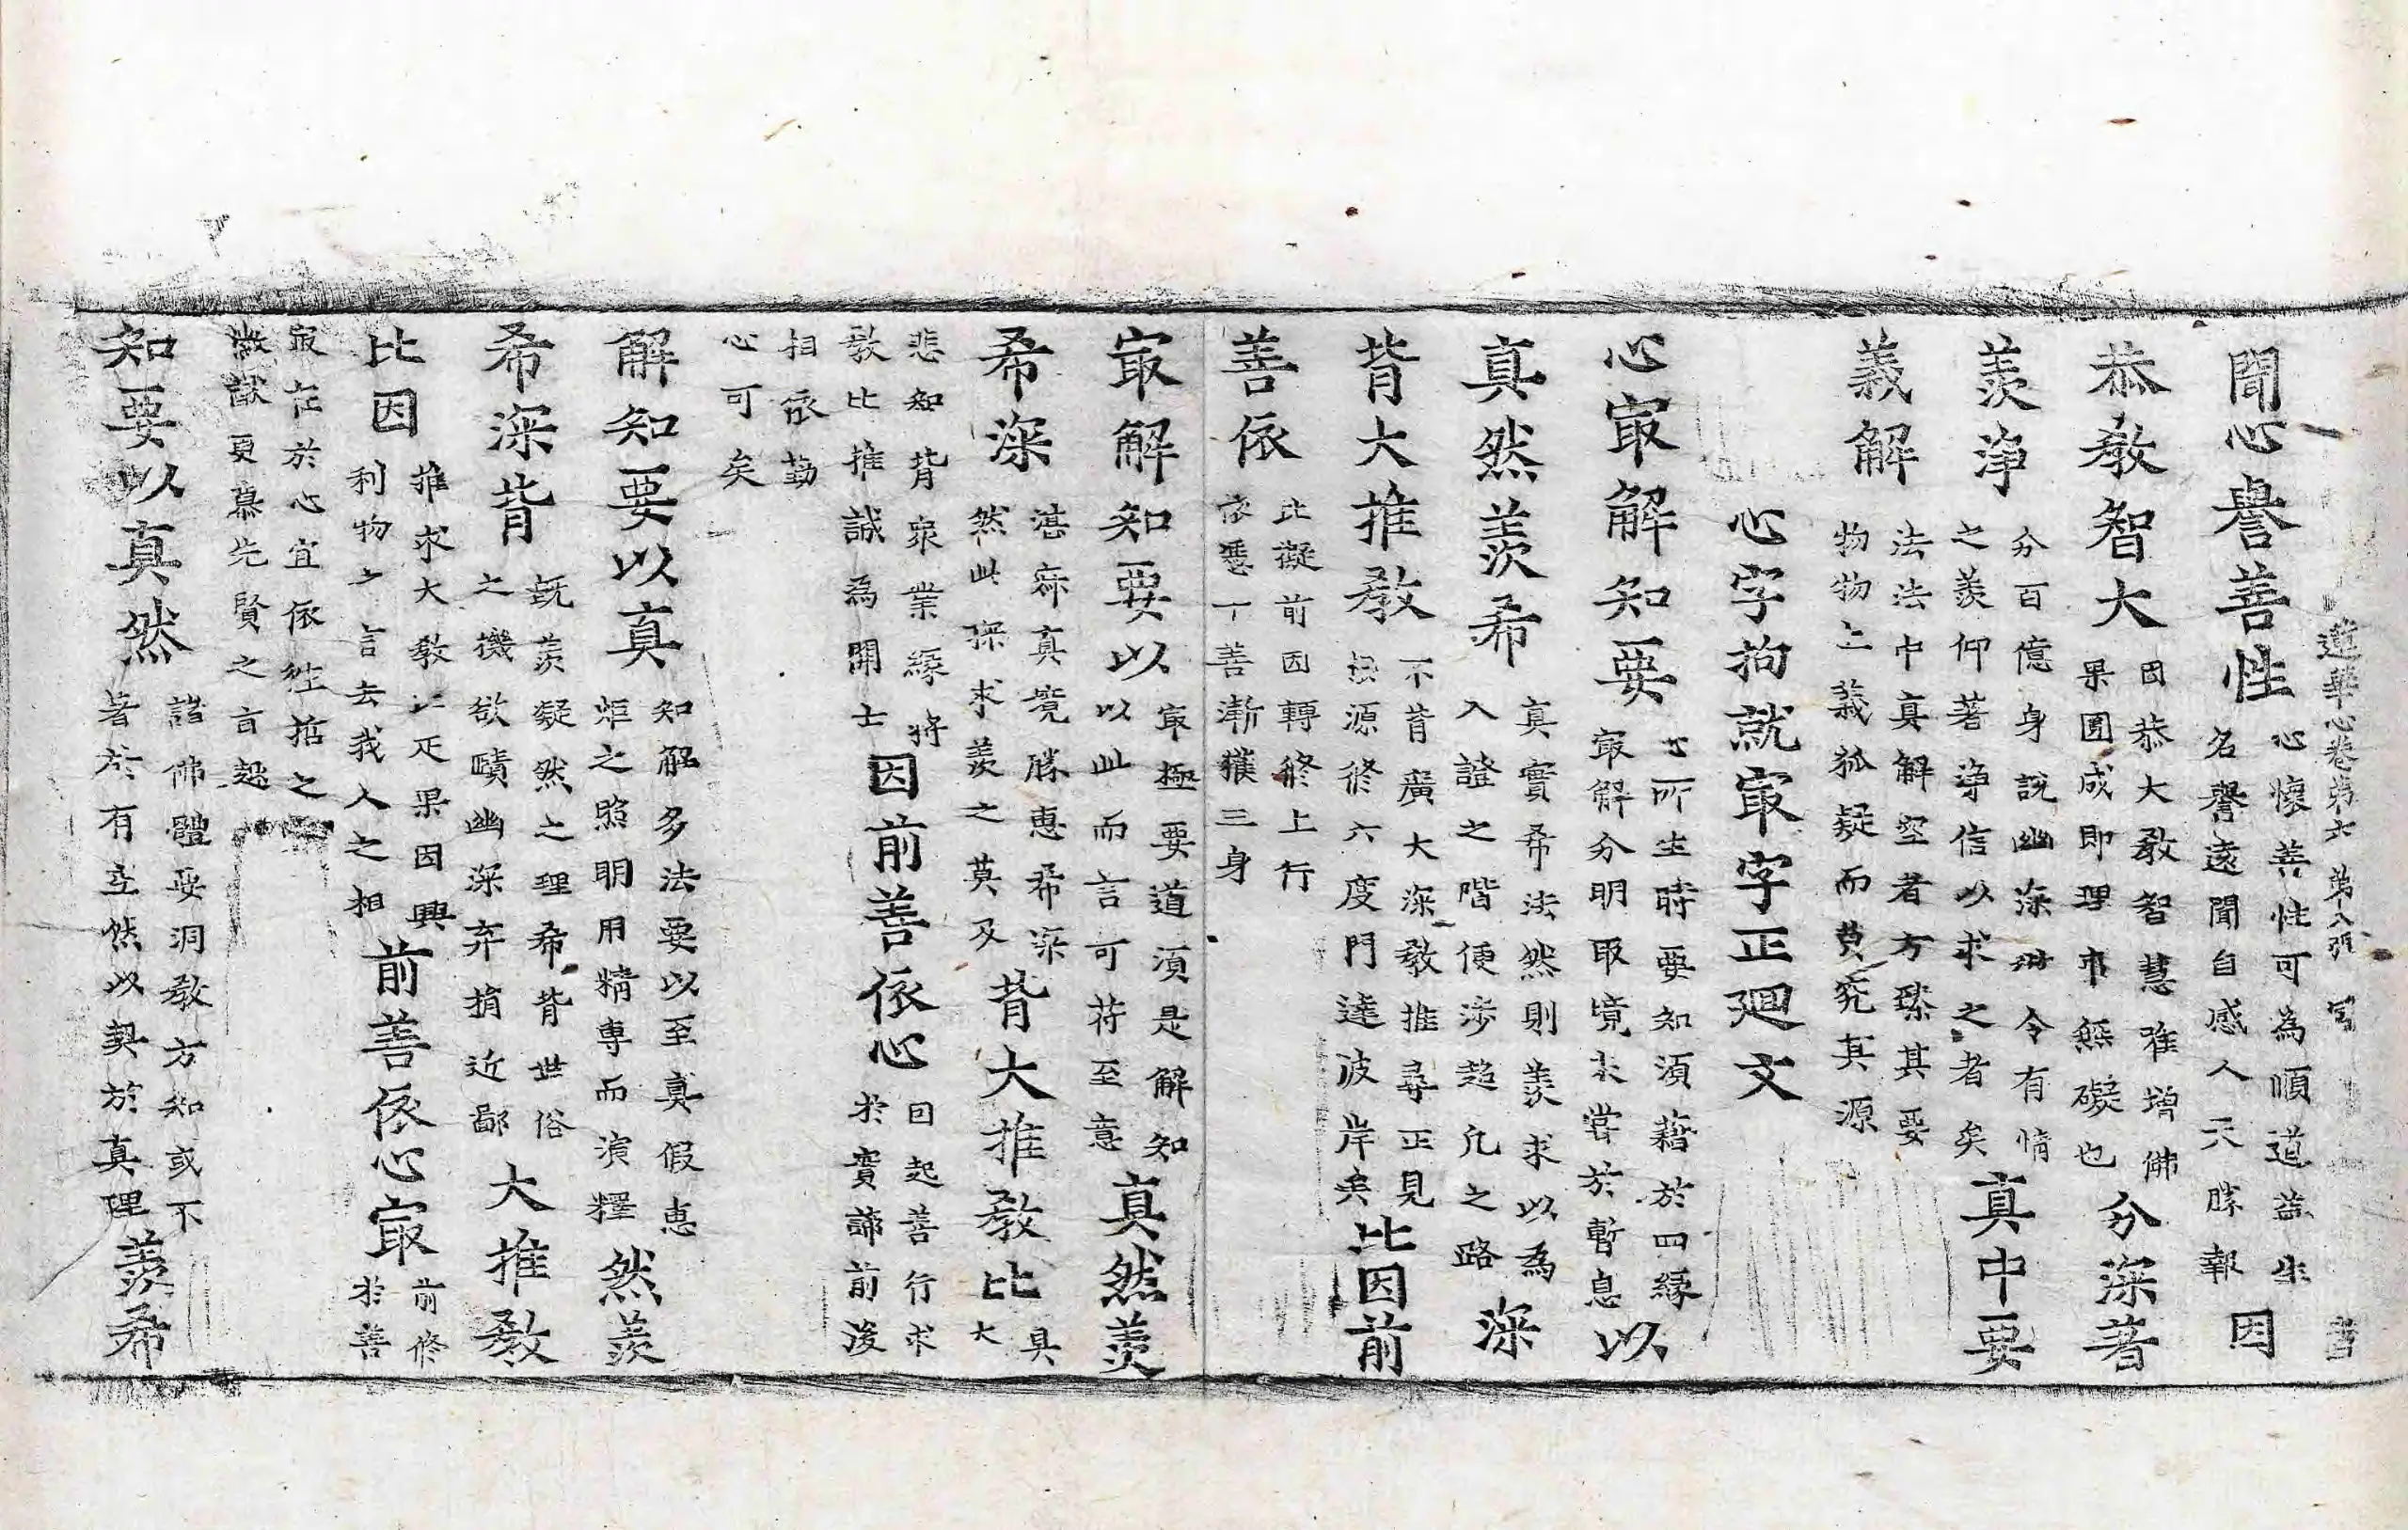 蓮華心卷第六 第八張
聞心譽善性 心懷善性可為順道益生 名譽遠聞自感人天勝報 因
恭教智大 因恭大教智慧唯增佛 果圓成即理事無礙也 分深著
羨淨 分百億身說幽深 令有情 之羨仰著淨信以求之者矣 真中要
義解 法法中真解空者方臻其要 物物上義孤疑而莫究其源
心字拘就㝡字正廻文
心㝡解知要 心所生時要知須藉於四緣 㝡解分明取境未嘗於暫息 以
真然羨希 真實希法然則羨求以為 入證之階便涉超凡之路 深
背大推教 不背廣大深教推尋正見 源修六度門達彼岸矣 比因前
善依 比擬前因轉修上行 依憑丁善漸獲三身
㝡解知要以 㝡極要道須是解知 以此而言可符至意 真然羨
希深 湛寂真境勝惠希深 然此深求羨之莫及 背大推教比 具大
悲知背眾業緣將 教比推誠為開士 因前善依心 因起善行求 於實諦前後
相依勤
心可矣
解知要以真 知解多法要以至真假惠 炬之照明用精專而演釋 然羨
希深背 既羨疑然之理希背世俗 之機欲賾幽深弃捐近鄙 大推教
比因 推求大教以疋果因興 利物之言去我人之相 前善依心㝡 前修於善
㝡在於心宜依往哲之 猷更慕先賢之言趣
知要以真然 諮佛體要洞教方知或不 著於有空然以契於真理 羨希